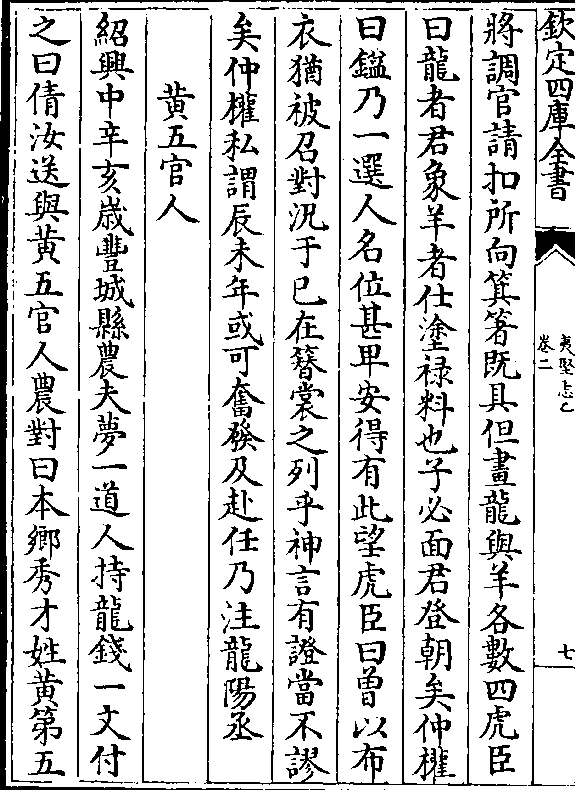 欽定四庫全書
夷堅志乙
卷二
七
將調官請扣所向箕箸既具但畫龍與羊各數四虎臣
曰龍者君象羊者仕塗祿料也子必面君登朝矣仲權
曰鎰乃一選人名位甚卑安得有此望虎臣曰曽以布
衣猶被召對況于已在簮裳之列乎神言有證當不謬
矣仲權私謂辰未年或可奮發及赴任乃注龍陽丞
黄五官人
紹興中辛亥歳豐城縣農夫夢一道人持龍錢一文付
之曰倩汝送與黄五官人農對曰本鄉秀才姓黄第五